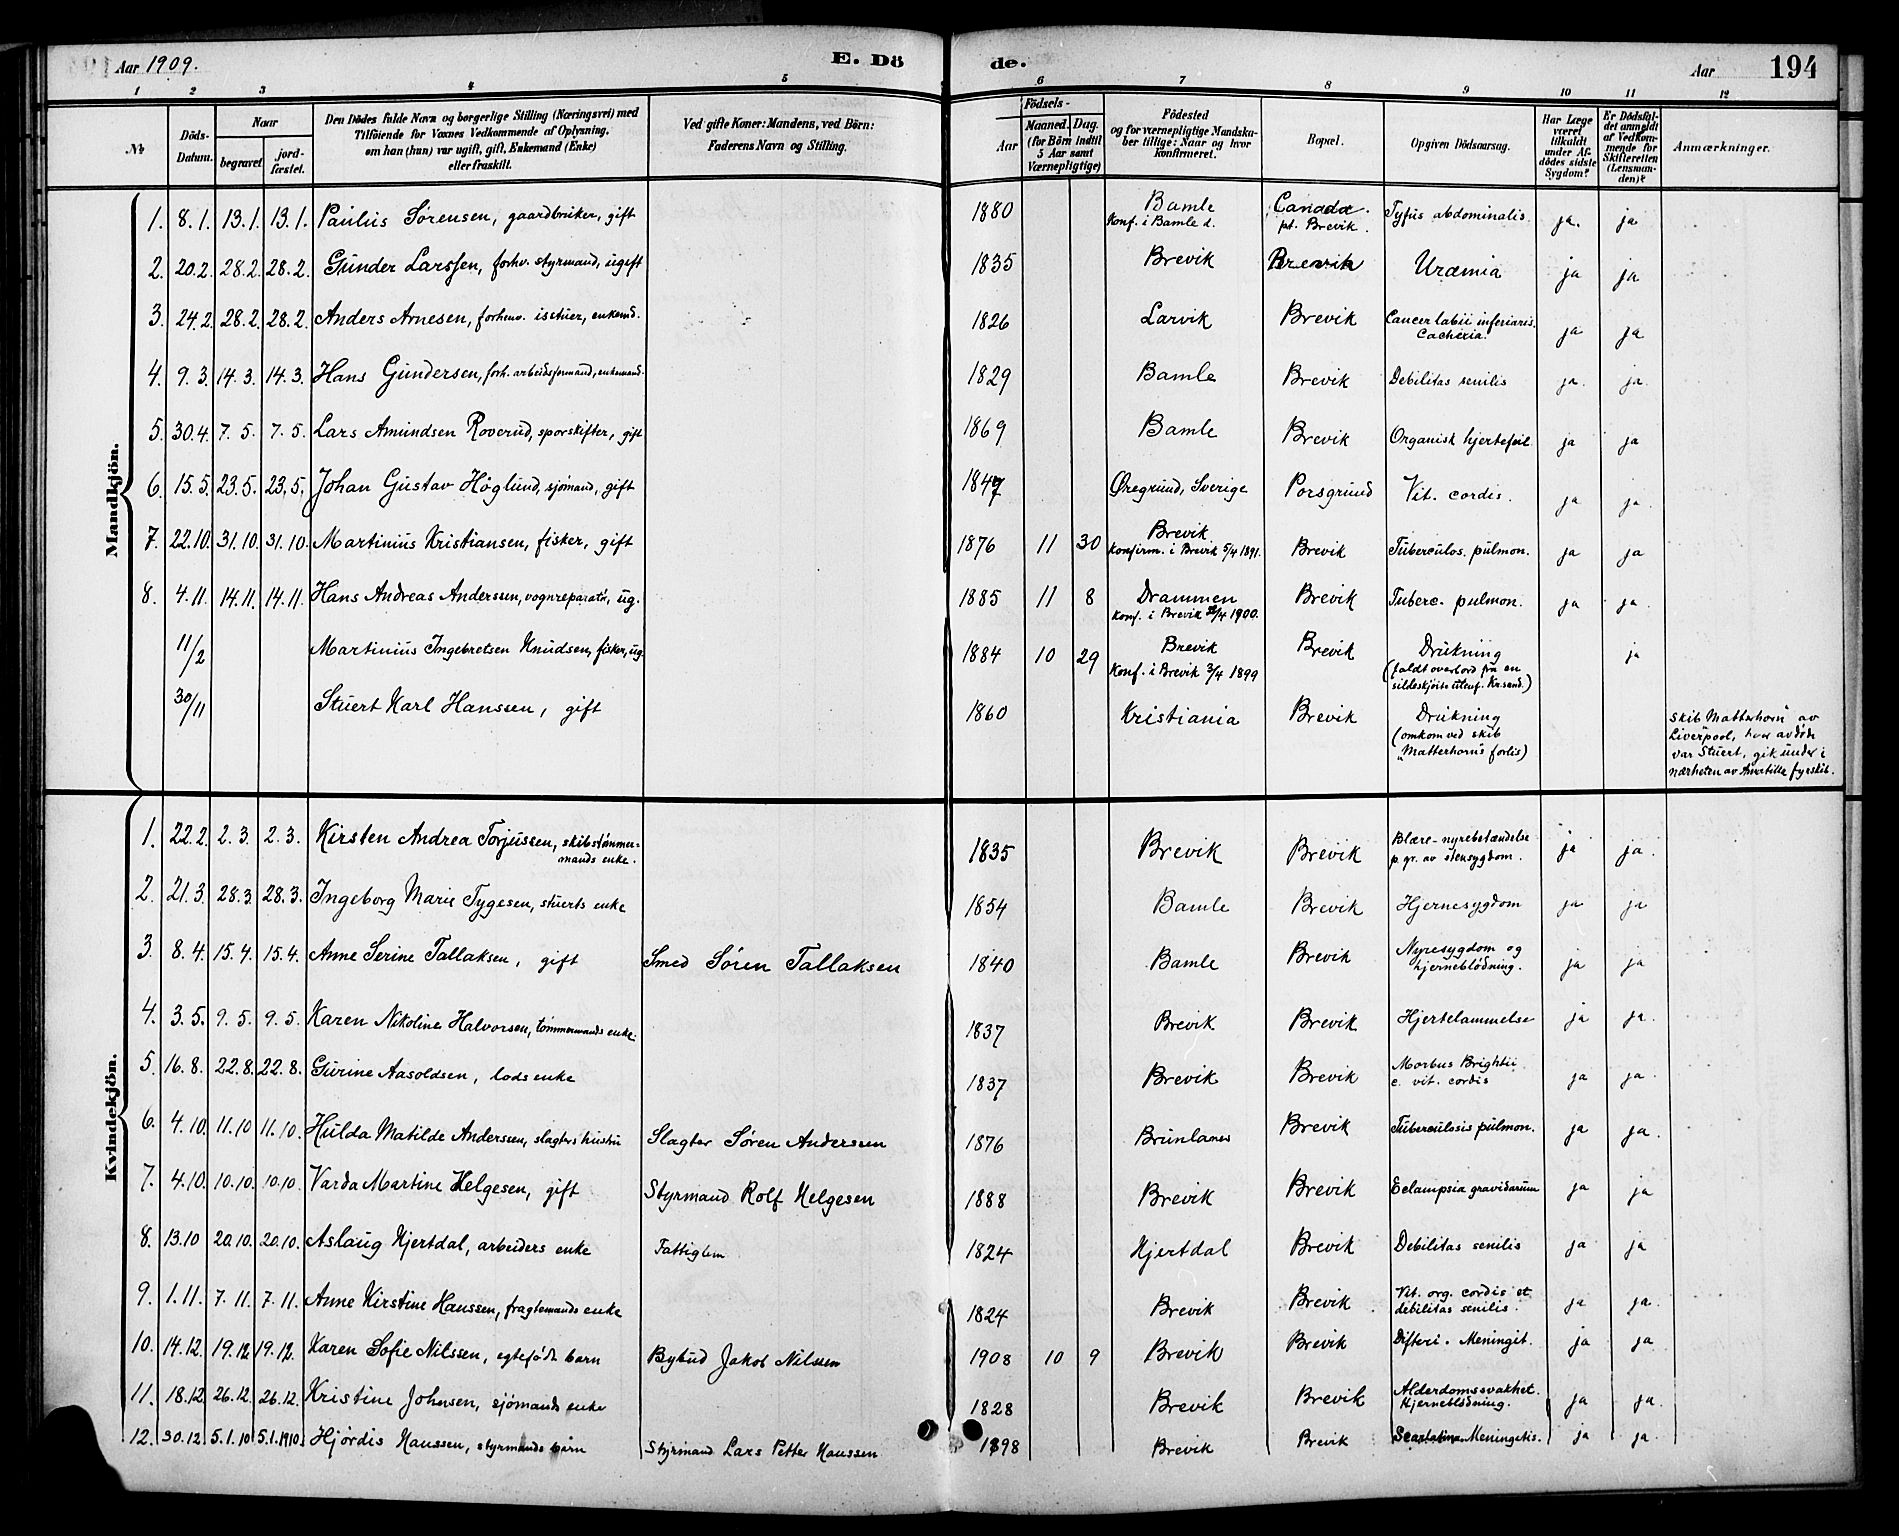 Aar 1909. E. Dö de. Aar 194
1 2 3 4 5 6 7 8 9 10 11 12
№ Döds-Datum. Naar begravet. jord-fæstet. Den Dödes fulde Navn og borgerlige Stilling (Næringsvei) med Tilföiende for Voxnes Vedkommende af Oplysning, om han (hun) var ugift, gift, Enkemand (Enke) eller fraskilt. Ved gifte Koner: Mandens, ved Börn: Faderens Navn og Stilling. Födsels- Aar Maaned. Dag. (for Börn indtil 5 Aar samt Værnepligtige) Födested og for værnepligtige Mandskaber tillige: Naar og hvor konfirmeret. Bopæl. Opgiven Dödsaarsag. Har Læge været tilkaldt under Afdödes sidste Sygdom? Er Dödsfaldet anmeldt af Vedkommende for Skifteretten (Lensmanden)? Anmærkninger.
Mandkjön.
1. 8.1. 13.1. 13.1. Paulus Sørensen, gaardbruker, gift 1880 Bamle Konf. i Bamle d. Canada. pt. Brevik. Tyfus abdominalis. ja. ja
2. 20.2. 28.2. 28.2. Gunder Larssen, forhv. styrmand, ugift 1835 Brevik Brevik Uræmia ja ja
3. 24.2. 28.2. 28.2. Anders Arnesen, forhenv. istuer, enkemd. 1826 Larvik Brevik Cancer labii inferiaris. Cachexia. ja ja
4. 9.3. 14.3. 14.3. Hans Gundersen, forh. arbeidsformand, enkemand. 1829 Bamle Brevik Debilitas senilis ja. ja.
5. 30.4. 7.5. 7.5. Lars Amundsen Roverud, sporskifter, gift 1869 Bamle Brevik Organisk hjertefeil ja ja
6. 15.5. 23.5. 23.5. Johan Gustav Höglund, sjömand, gift 1847 Øregrund, Sverige Porsgrund Vit. cordis. ja ja.
7. 22.10. 31.10. 31.10. Martinius Kristiansen, fisker, gift 1876 11 30 Brevik Konfirm. i Brevik 5/4 1891. Brevik Tuberculos. pulmon. ja ja
8. 4.11. 14.11. 14.11. Hans Andreas Anderssen, vognreparatør, ug. 1885 11 8 Drammen Konf. i Brevik /4 1900. Brevik Tuberc. pulmon. ja ja.
11/2 Martinius Ingebretsen Knudsen, fisker, ug. 1884 10 29 Brevik Konf. i Brevik 2/4 1899 Brevik Drukning (faldt overbord fra en sildeskjøite utenf. Kr.sand.) ja
30/11 Stuert Karl Hanssen, gift 1860 Kristiania Brevik Drukning (omkom ved skib „Matterhorn's forlis) Skib „Matterhorn" av Liverpool, hvor avdøde var Stuert, gik under i nærheten av fyrskib.
Kvindekjön.
1. 22.2. 2.3. 2.3. Kirsten Andrea Torjussen, skibstømmermands enke. 1835 Brevik Brevik Blære-nyrebetændelse p. gr. av stensygdom. ja ja.
2. 21.3. 28.3. 28.3. Ingeborg Marie Tygesen, stuerts enke 1854 Bamle Brevik Hjernesygdom ja ja
3. 8.4. 15.4. 15.4. Anne Serine Tallaksen, gift Smed Sören Tallaksen 1840 Bamle Brevik Nyresygdom og hjerneblödning. ja ja
4. 3.5. 9.5. 9.5. Karen Nikoline Halvorsen, tömmermands enke. 1837 Brevik Brevik Hjertelammelse ja ja.
5. 16.8. 22.8. 22.8. Gurine Aasoldsen, lods enke 1837 Brevik Brevik Morbus Brightii c. vit. cordis ja ja.
6. 4.10. 11.10 11.10. Hulda Matilde Anderssen, slagters hustru Slagter Sören Anderssen 1876 Brunlanes Brevik Tuberculosis pulmon. ja ja.
7. 4.10. 10.10. 10.10. Varda Martine Helgesen, gift Styrmand Rolf Helgesen 1888 Brevik Brevik Eclampsia gravidarum ja ja
8. 13.10 20.10. 20.10. Aslaug Hjertdal, arbeiders enke Fattiglem 1824 Hjertdal Brevik Debilitas senilis ja ja
9. 1.11. 7.11. 7.11. Anne Kirstine Hanssen, fragtemands enke 1824 Brevik Brevik Vit. org. cordis et debilitas senilis. ja ja.
10. 14.12. 19.12. 19.12. Karen Sofie Nilssen, egtefødt barn Bybud Jakob Nilssen 1908 10 9 Brevik Brevik Difteri. Meningit. ja ja.
11. 18.12. 26.12. 26.12. Kristine Johnsen, sjömands enke 1828 Brevik Brevik Alderdomssvakhet. Hjerneblödning. ja ja.
12. 30.12. 5.1.10 5.1.1910. Hjördis Hanssen, styrmands barn Styrmand Lars Petter Hanssen 1898 Brevik Brevik Scarlatina Meningitis. ja ja.